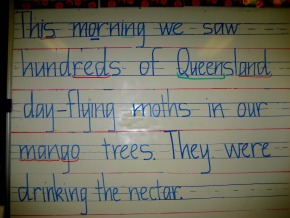 This morning we saw
hundreds of Queensland
day-flying moths in our
mango trees. They were
drinking the nectar.